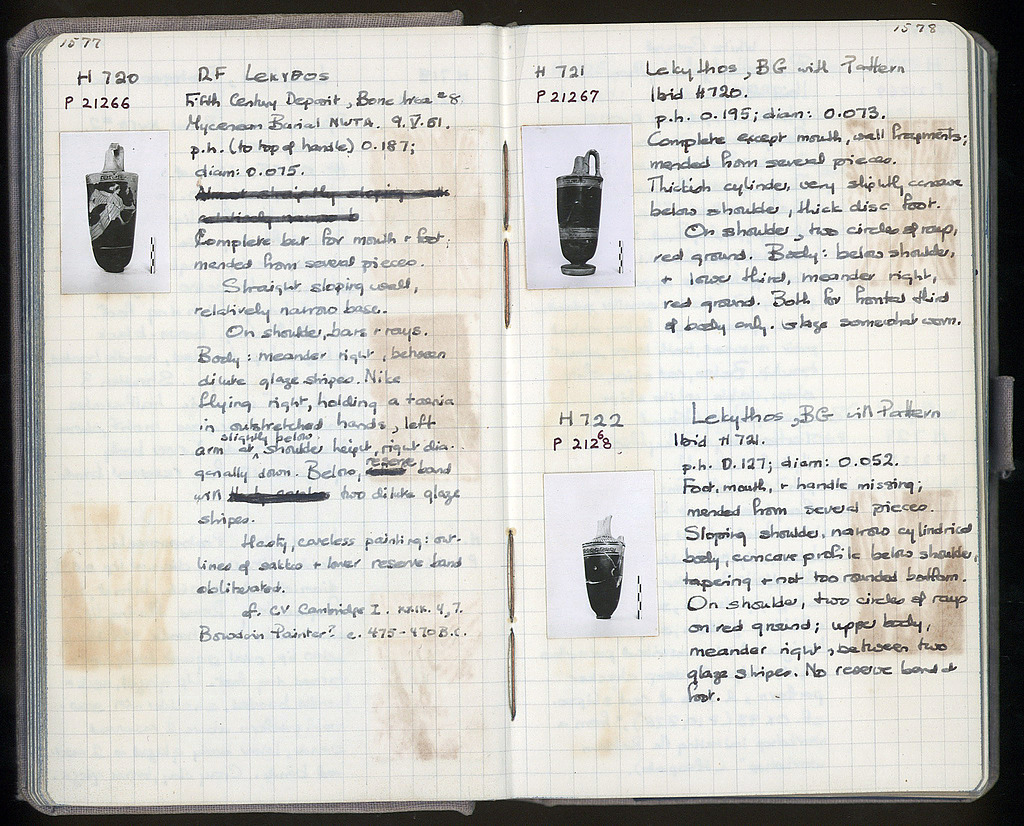 1577
H 720
P 21266
RF Lekythos
Fifth Century Deposit, Bone Area #8
Mycenean Burial NWTA. 9.V.51.
p.h. (to top of handle) 0.187;
diam: 0.075.
Complete but for mouth + foot;
mended from several pieces.
Straight sloping wall,
relatively narrow base.
On shoulder, bars + rays.
Body: meander right, between
dilute glaze stripes. Nike
flying right, holding a taenia
in outstretched hands, left
slightly below
arm at shoulder height, right dia-
gonally down. Below, reserve band
with two dilute glaze
stripes.
Hasty, careless painting: out-
lines of sakkos + lower reserve band
obliterated.
cf. CV Cambridge I. xxix. 4,7.
Bowdoin Painter? c. 475-470 B.C.
1578
H 721
P 21267
Lekythos, BG with Pattern
Ibid #720.
p.h. 0.195; diam: 0.073.
Complete except mouth, wall fragments;
mended from several pieces.
Thickish cylinder, very slightly concave
below shoulder, thick disc foot.
On shoulder, two circles of rays,
red ground. Body: below shoulder,
+ lower third, meander right,
red ground. Both for frontal third
of body only. Glaze somewhat worn.
H 722
P 21268
Lekythos, BG with Pattern
Ibid #721.
p.h. 0.127; diam: 0.052.
Foot, mouth, + handle missing;
mended from several pieces.
Sloping shoulder, narrow cylindrical
body, concave profile below shoulder,
tapering + not too rounded bottom.
On shoulder, two circles of rays
on red ground; upper body,
meander right, between two
glaze stripes. No reserve band at
foot.